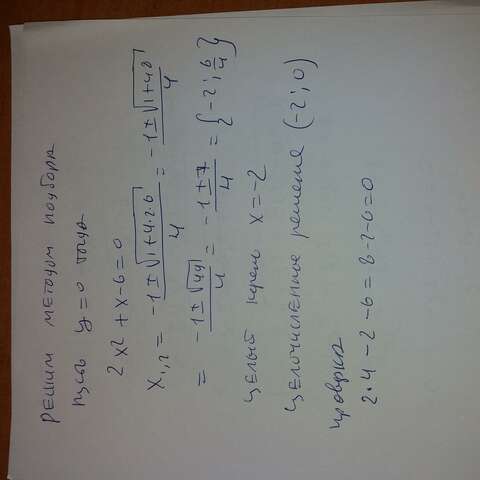 РЕШИМ МЕТОДОМ ПОДБОРА
ПУСТЬ y=0 тогда
2x²+x-6=0
x₁,₂ = (-1±√(1+4·2·6))/4 = (-1±√(1+48))/4
= (-1±√49)/4 = (-1±7)/4 = {-2; 6/4}
ЦЕЛЫЙ корень x=-2
ЦЕЛОЧИСЛЕННОЕ решение (-2; 0)
ПРОВЕРКА
2·4-2-6=8-2-6=0